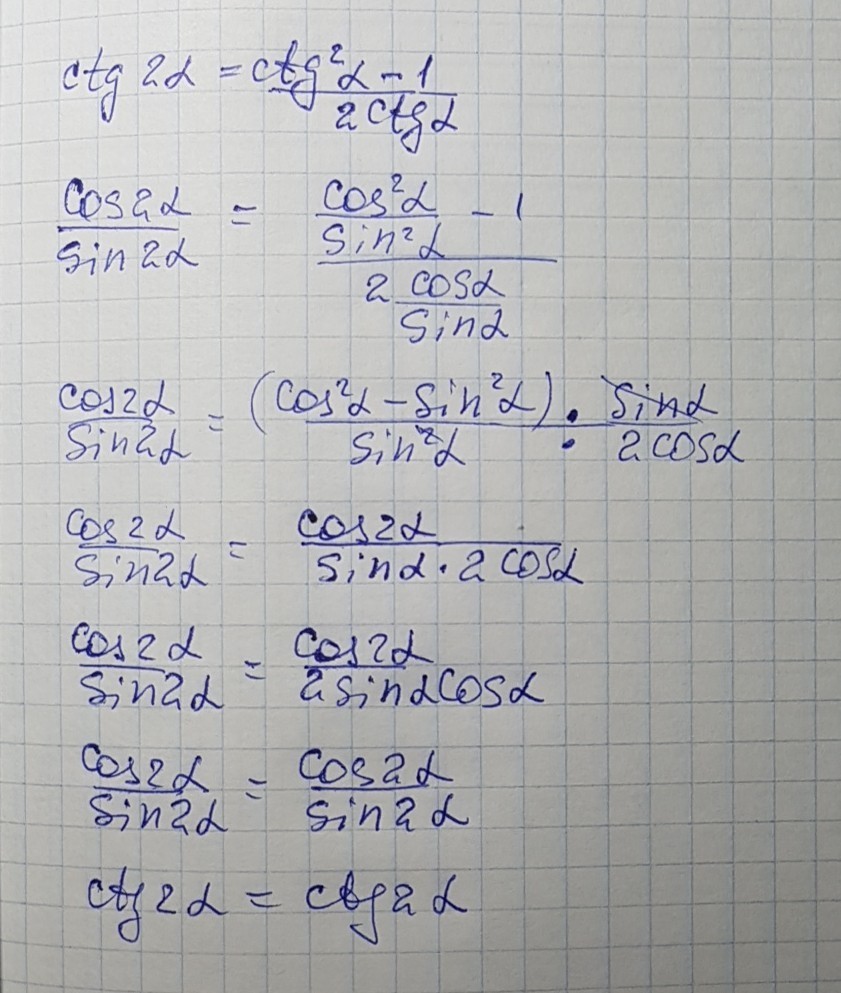 ctg 2α = ctg²α - 1 / 2ctgα
cos2α / sin2α = (cos²α / sin²α - 1) / (2 cosα / sinα)
cos2α / sin2α = (cos²α - sin²α) / sin²α · sinα / 2cosα
cos2α / sin2α = cos2α / sinα · 2cosα
cos2α / sin2α = cos2α / 2sinαcosα
cos2α / sin2α = cos2α / sin2α
ctg2α = ctg2α